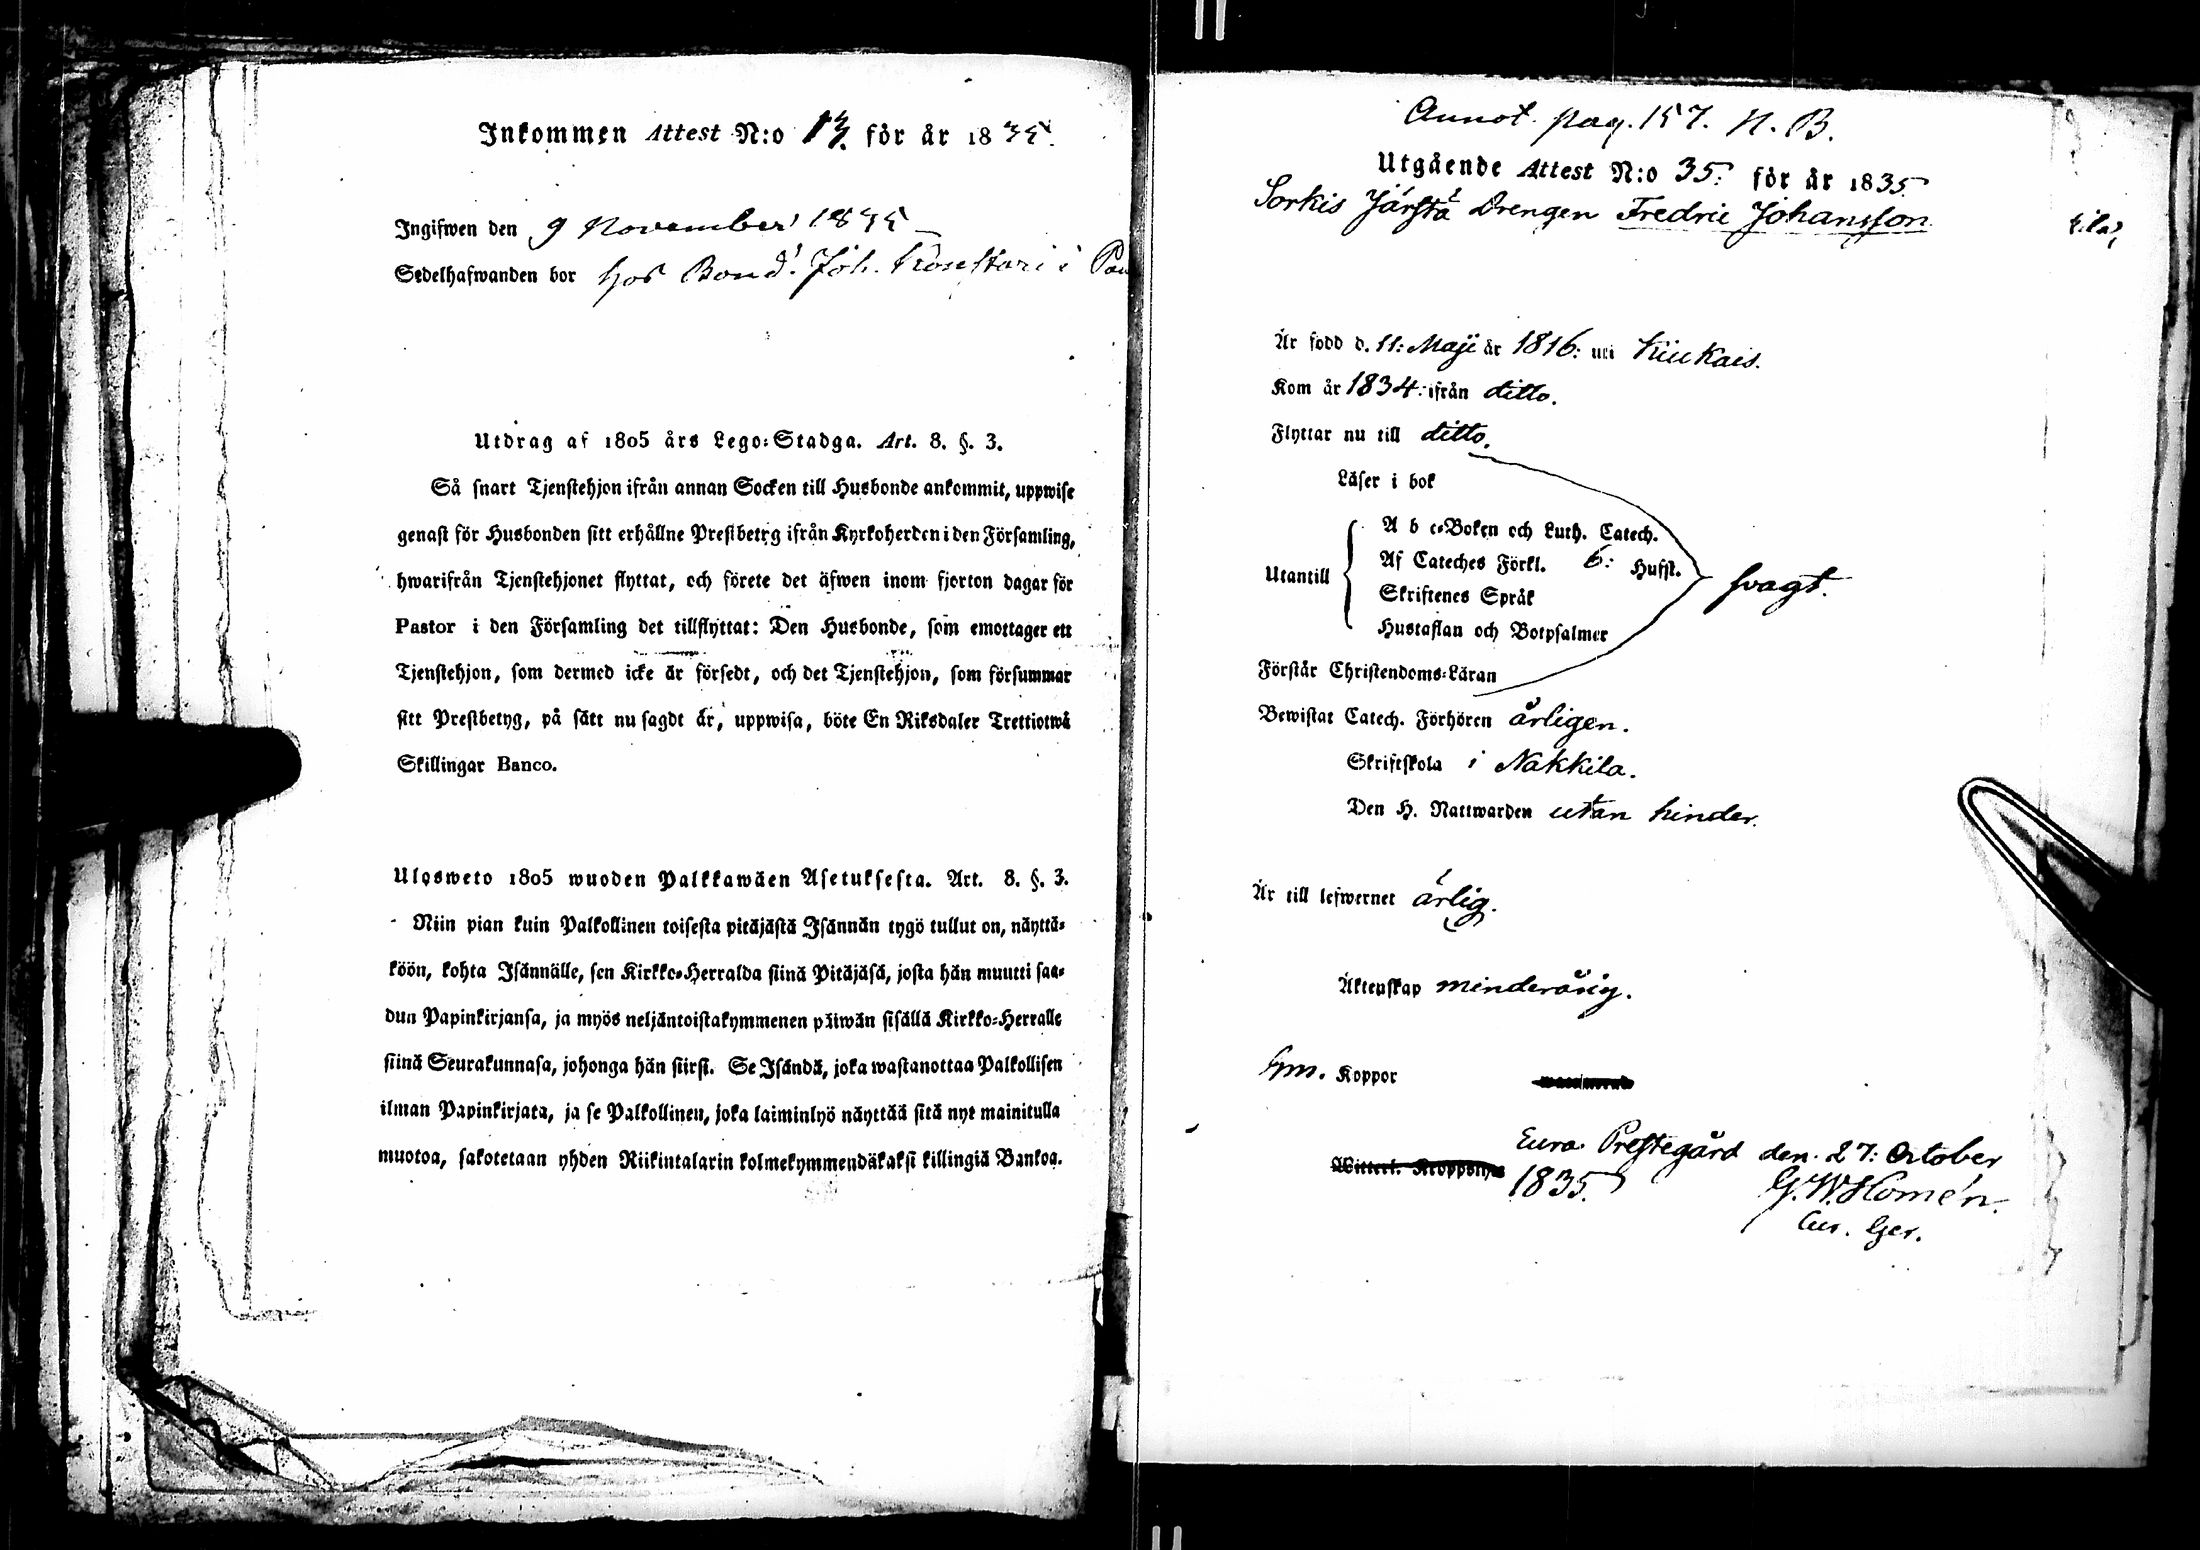 Inkommen Attest N:o 13. för år 1835.
Ingifwen den 9 November 1835
Sedelhafwanden bor hos Bond. Joh.
Utdrag af 1805 års Lego-Stadga. Art. 8. §. 3.
Så snart Tjenstehjon ifrån annan Socken till Husbonde ankommit, uppwise
genast för Husbonden sitt erhållne Prestbetyg ifrån Kyrkoherden i den Församling,
hwarifrån Tjenstehjonet flyttat, och förete det äfwen inom fjorton dagar för
Pastor i den Församling det tillflyttat: Den Husbonde, som emottager ett
Tjenstehjon, som dermed icke är försedt, och det Tjenstehjon, som försummar
sitt Prestbetyg, på sätt nu sagdt är, uppwisa, böte En Riksdaler Trettiotwå
Skillingar Banco.
Ulosweto 1805 wuoden Palkkawäen Asetuksesta. Art. 8. §. 3.
Niin pian kuin Palkollinen toisesta pitäjästä Isännän tygö tullut on, näyttä-
köön, kohta Isännälle, sen Kirkko-Herralda siinä Pitäjäsä, josta hän muutti saa-
dun Papinkirjansa, ja myös neljäntoistakymmenen päiwän sisällä Kirkko-Herralle
siinä Seurakunnasa, johonga hän siirsi. Se Isändä, joka wastanottaa Palkollisen
ilman Papinkirjata, ja se Palkollinen, joka laiminlyö näyttää sitä nyt mainitulla
muotoa, sakotetaan yhden Riikintalarin kolmekymmendäkaksi killingiä Bankoa.
Annot. pag. 157. N. B.
Utgående Attest N:o 35. för år 1835
Sorkis Järstä Drengen Fredric Johansson
Är född d. 11: Maji år 1816: uti Kiukais.
Kom år 1834: ifrån ditto.
Flyttar nu till ditto.
Läser i bok
A b c-Boken och Luth. Catech.
Af Cateches Förkl. 6: Hufst.
Utantill
svagt.
Skriftenes Språk
Hustaflan och Botpsalmer
Förstår Christendoms-Läran
Bewistat Catech. Förhören årligen.
Skriftskola i Nakkila.
Den H. Nattwarden utan hinder.
Är till lefwernet ärlig.
Äktenskap minderårig.
Koppor
Eura Prestegård den. 27: October
Witterl. Kroppslyte
1835.
G. W. Homén.